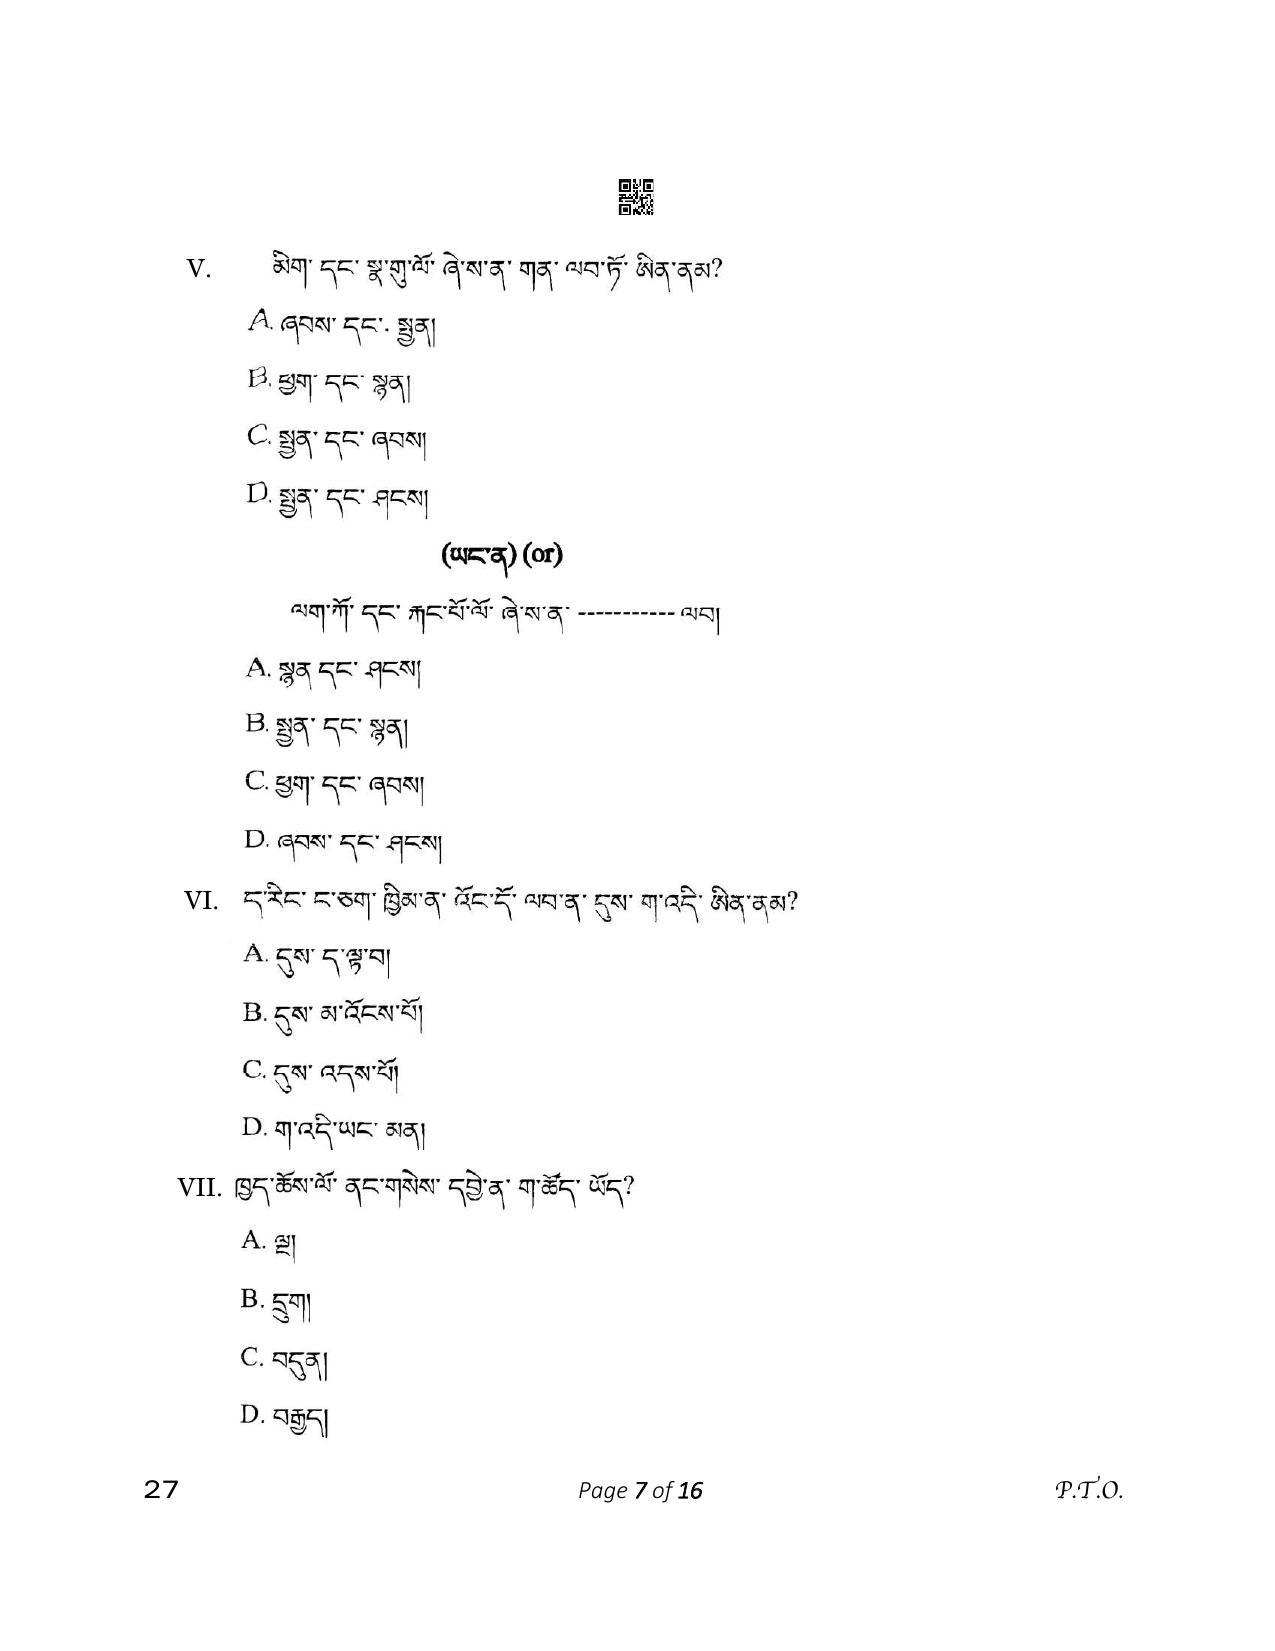 V. མིག་ དང་ སྣ་གུ་ལོ་ ཞེ་ས་ན་ གན་ ལབ་ཏོ་ ཨིན་ནམ?
A. ཞབས་ དང་. སྤྱན།
B. ཕྱག་ དང་ སྙན།
C. སྤྱན་ དང་ ཞབས།
D. སྤྱན་ དང་ ཤངས།
(ཡང་ན) (or)
ལག་ཀོ་ དང་ རྐང་པོ་ལོ་ ཞེ་ས་ན་ ----------- ལབ།
A. སྙན དང་ ཤངས།
B. སྤྱན་ དང་ སྙན།
C. ཕྱག་ དང་ ཞབས།
D. ཞབས་ དང་ ཤངས།
VI. ད་རེང་ ང་ཅག་ ཁྱིམ་ན་ འོང་དོ་ ལབ་ན་ དུས་ ག་འདི་ ཨིན་ནམ?
A. དུས་ ད་ལྟ་བ།
B. དུས་ མ་འོངས་པོ།
C. དུས་ འདས་པོ།
D. ག་འདི་ཡང་ མན།
VII. ཁྱད་ཆོས་ལོ་ ནང་གསེས་ དབྱེ་ན་ ག་ཚོད་ ཡོད?
A. ལྔ།
B. དྲུག།
C. བདུན།
D. བརྒྱད།
27 Page 7 of 16 P.T.O.